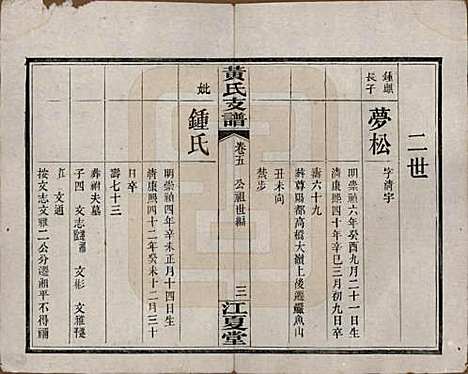 二世
鍾麒長子
夢松
字清宇
明崇禎六年癸酉九月二十一日生
清康熙四十年辛巳三月初九日卒
壽六十九
葬尊陽都高橋大嶺上後遷鱷魚山
丑未向
禁步
黃氏支譜
卷五
公祖世編
三
江夏堂
妣
鍾氏
明崇禎四年辛未正月十四日生
清康熙四十二年癸未十二月三十
日卒
壽七十三
葬祔夫墓
子四
文志
文彬
文雅
文通
按文志文雅二公分遷湘平不得禰